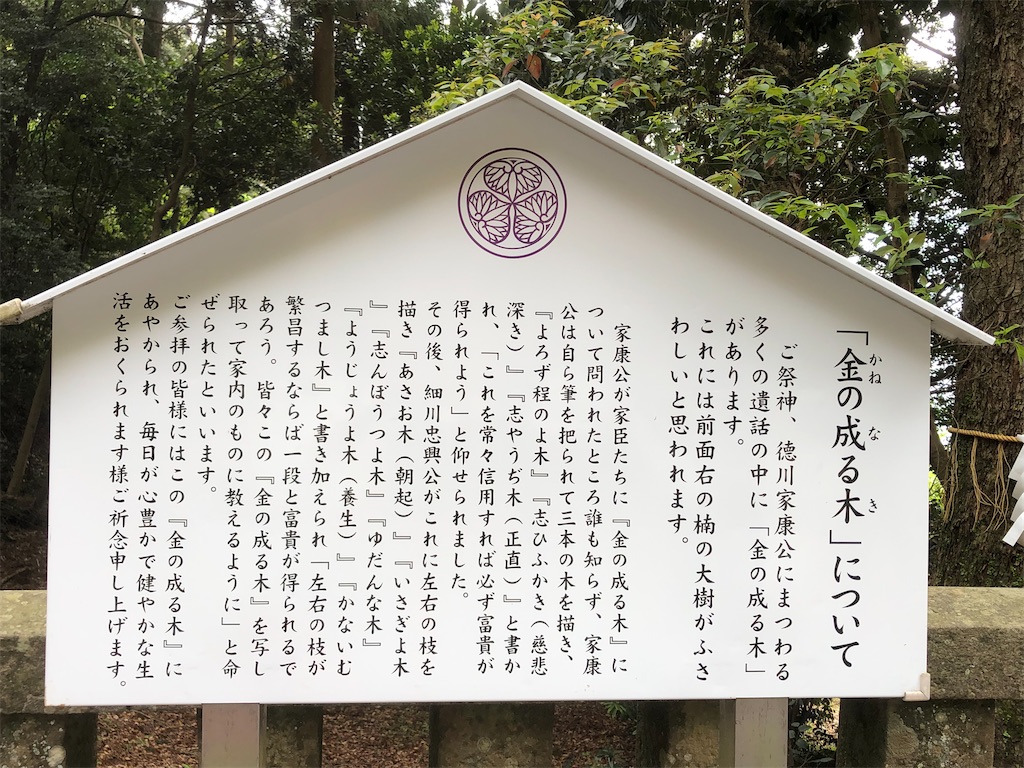 「金の成る木」について
かね な き
ご祭神、徳川家康公にまつわる
多くの遺話の中に「金の成る木」
があります。
これには前面右の楠の大樹がふさ
わしいと思われます。
家康公が家臣たちに『金の成る木』に
ついて問われたところ誰も知らず、家康
公は自ら筆を把られて三本の木を描き、
『よろず程のよ木』『志ひふかき(慈悲
深き)』『志やうぢ木(正直)』と書か
れ、「これを常々信用すれば必ず富貴が
得られよう」と仰せられました。
その後、細川忠興公がこれに左右の枝を
描き『あさお木(朝起)』『いさぎよ木
』『志んぼうつよ木』『ゆだんな木』
『ようじょうよ木(養生)』『かないむ
つまし木』と書き加えられ「左右の枝が
繁昌するならば一段と富貴が得られるで
あろう。皆々この『金の成る木』を写し
取って家内のものに教えるように」と命
ぜられたといいます。
ご参拝の皆様にはこの『金の成る木』に
あやかられ、毎日が心豊かで健やかな生
活をおくられます様ご祈念申し上げます。